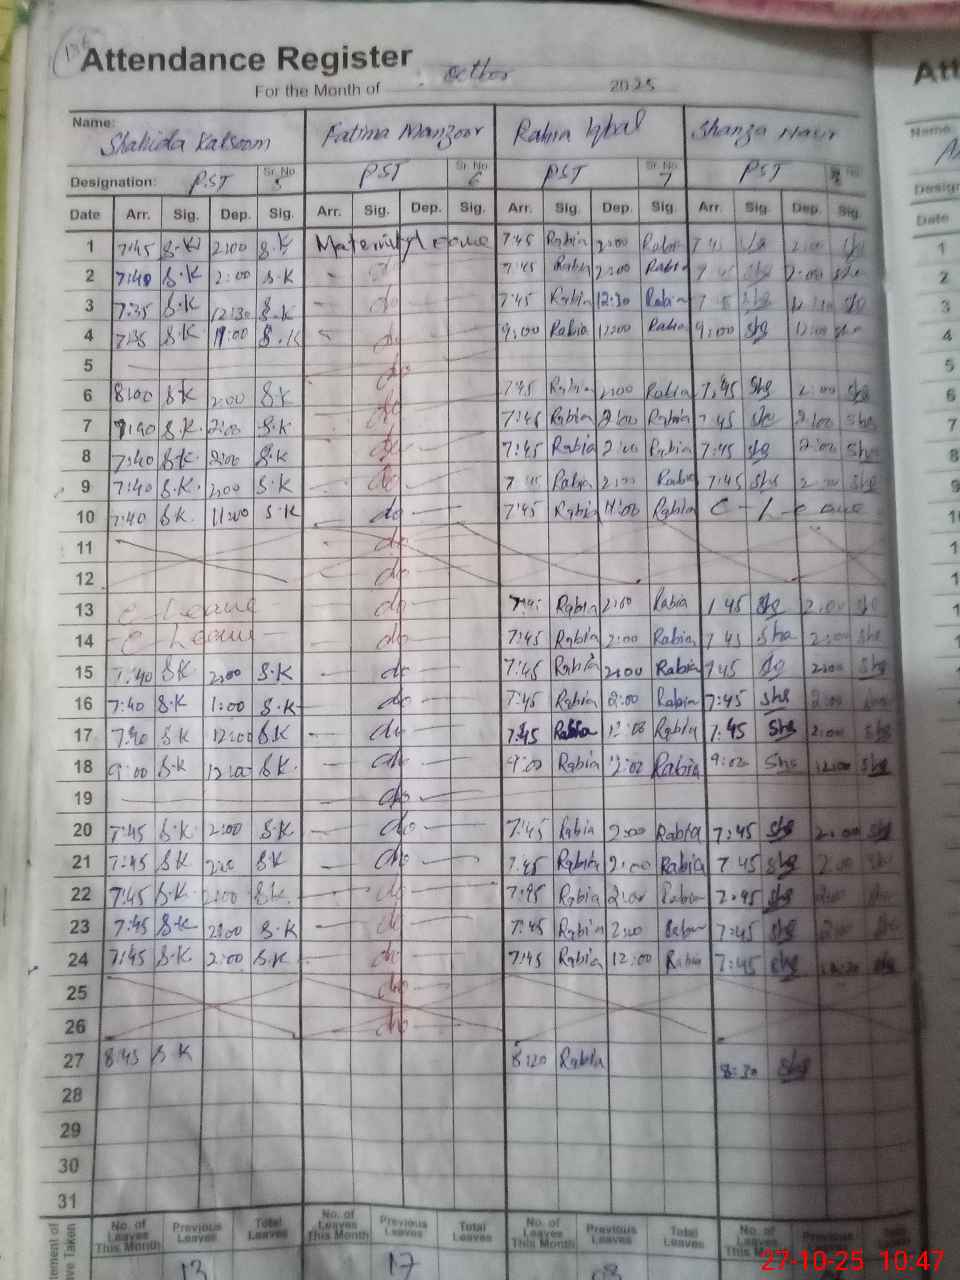 Attendance Register
For the Month of October 2025
Name: Shahida Kalsoom Fatima Manzoor Rabia Iqbal Shanza
Designation: PST Sr. No 5 PST Sr. No 6 PST Sr. No 7 PST Sr. No 8
Date Arr. Sig. Dep. Sig. Arr. Sig. Dep. Sig. Arr. Sig. Dep. Sig. Arr. Sig. Dep. Sig.
1 7:45 S.K 2:00 S.K Maternity Leave 7:45 Rabia 2:00 Rabia 7:45 Sha 2:00
2 7:40 S.K 2:00 S.K do 7:45 Rabia 2:00 Rabia 7:45 Sha 2:00 Sha
3 7:35 S.K 12:30 S.K do 7:45 Rabia 12:30 Rabia 7:45 Sha Sha
4 7:35 S.K S.K do 9:00 Rabia 12:00 Rabia 9:00 Sha 12:00 Sha
5 do
6 8:00 S.K 2:00 S.K do 7:45 Rabia 2:00 Rabia 7:45 Sha 2:00 Sha
7 7:40 S.K 2:00 S.K do 7:45 Rabia 2:00 Rabia 7:45 Sha 2:00 Sha
8 7:40 S.K 2:00 S.K do 7:45 Rabia 2:00 Rabia 7:45 Sha 2:00 Sha
9 7:40 S.K 2:00 S.K do 7:45 Rabia 2:00 Rabia 7:45 Sha 2:00 Sha
10 7:40 S.K 11:00 S.K do 7:45 Rabia 11:00 Rabia C-Leave
11 do
12 do
13 C Leave do 7:45 Rabia 2:00 Rabia 7:45 Sha 2:00 Sha
14 C Leave do 7:45 Rabia 2:00 Rabia 7:45 Sha 2:00 Sha
15 7:40 S.K 2:00 S.K do 7:45 Rabia 2:00 Rabia 7:45 Sha 2:00 Sha
16 7:40 S.K 1:00 S.K do 7:45 Rabia 2:00 Rabia 7:45 Sha 2:00
17 7:40 S.K 12:00 S.K do 7:45 Rabia 12:00 Rabia 7:45 Sha 2:00 Sha
18 9:00 S.K 12:00 S.K do 9:00 Rabia 12:00 Rabia 9:00 Sha 12:00 Sha
19 do
20 7:45 S.K 2:00 S.K do 7:45 Rabia 2:00 Rabia 7:45 Sha 2:00 Sha
21 7:45 S.K 2:00 S.K do 7:45 Rabia 2:00 Rabia 7:45 Sha 2:00 Sha
22 7:45 S.K 2:00 S.K do 7:45 Rabia 2:00 Rabia 7:45 Sha 2:00
23 7:45 S.K 2:00 S.K do 7:45 Rabia 2:00 Rabia 7:45 Sha 2:00 Sha
24 7:45 S.K 2:00 S.K do 7:45 Rabia 12:00 Rabia 7:45 Sha Sha
25 do
26 do
27 8:45 S.K 8:20 Rabia 8:30 Sha
28
29
30
31
No. of Leaves This Month Previous Leaves Total Leaves No. of Leaves This Month Previous Leaves Total Leaves No. of Leaves This Month Previous Leaves Total Leaves No. of Leaves This Previous
13 17 08
27-10-25 10:47